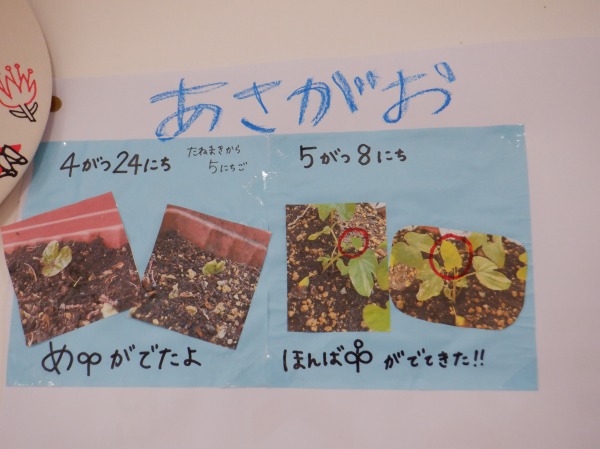 あさがお
4がつ24にち
たねまきから
5にちご
めがでたよ
5がつ8にち
ほんばがでてきた!!